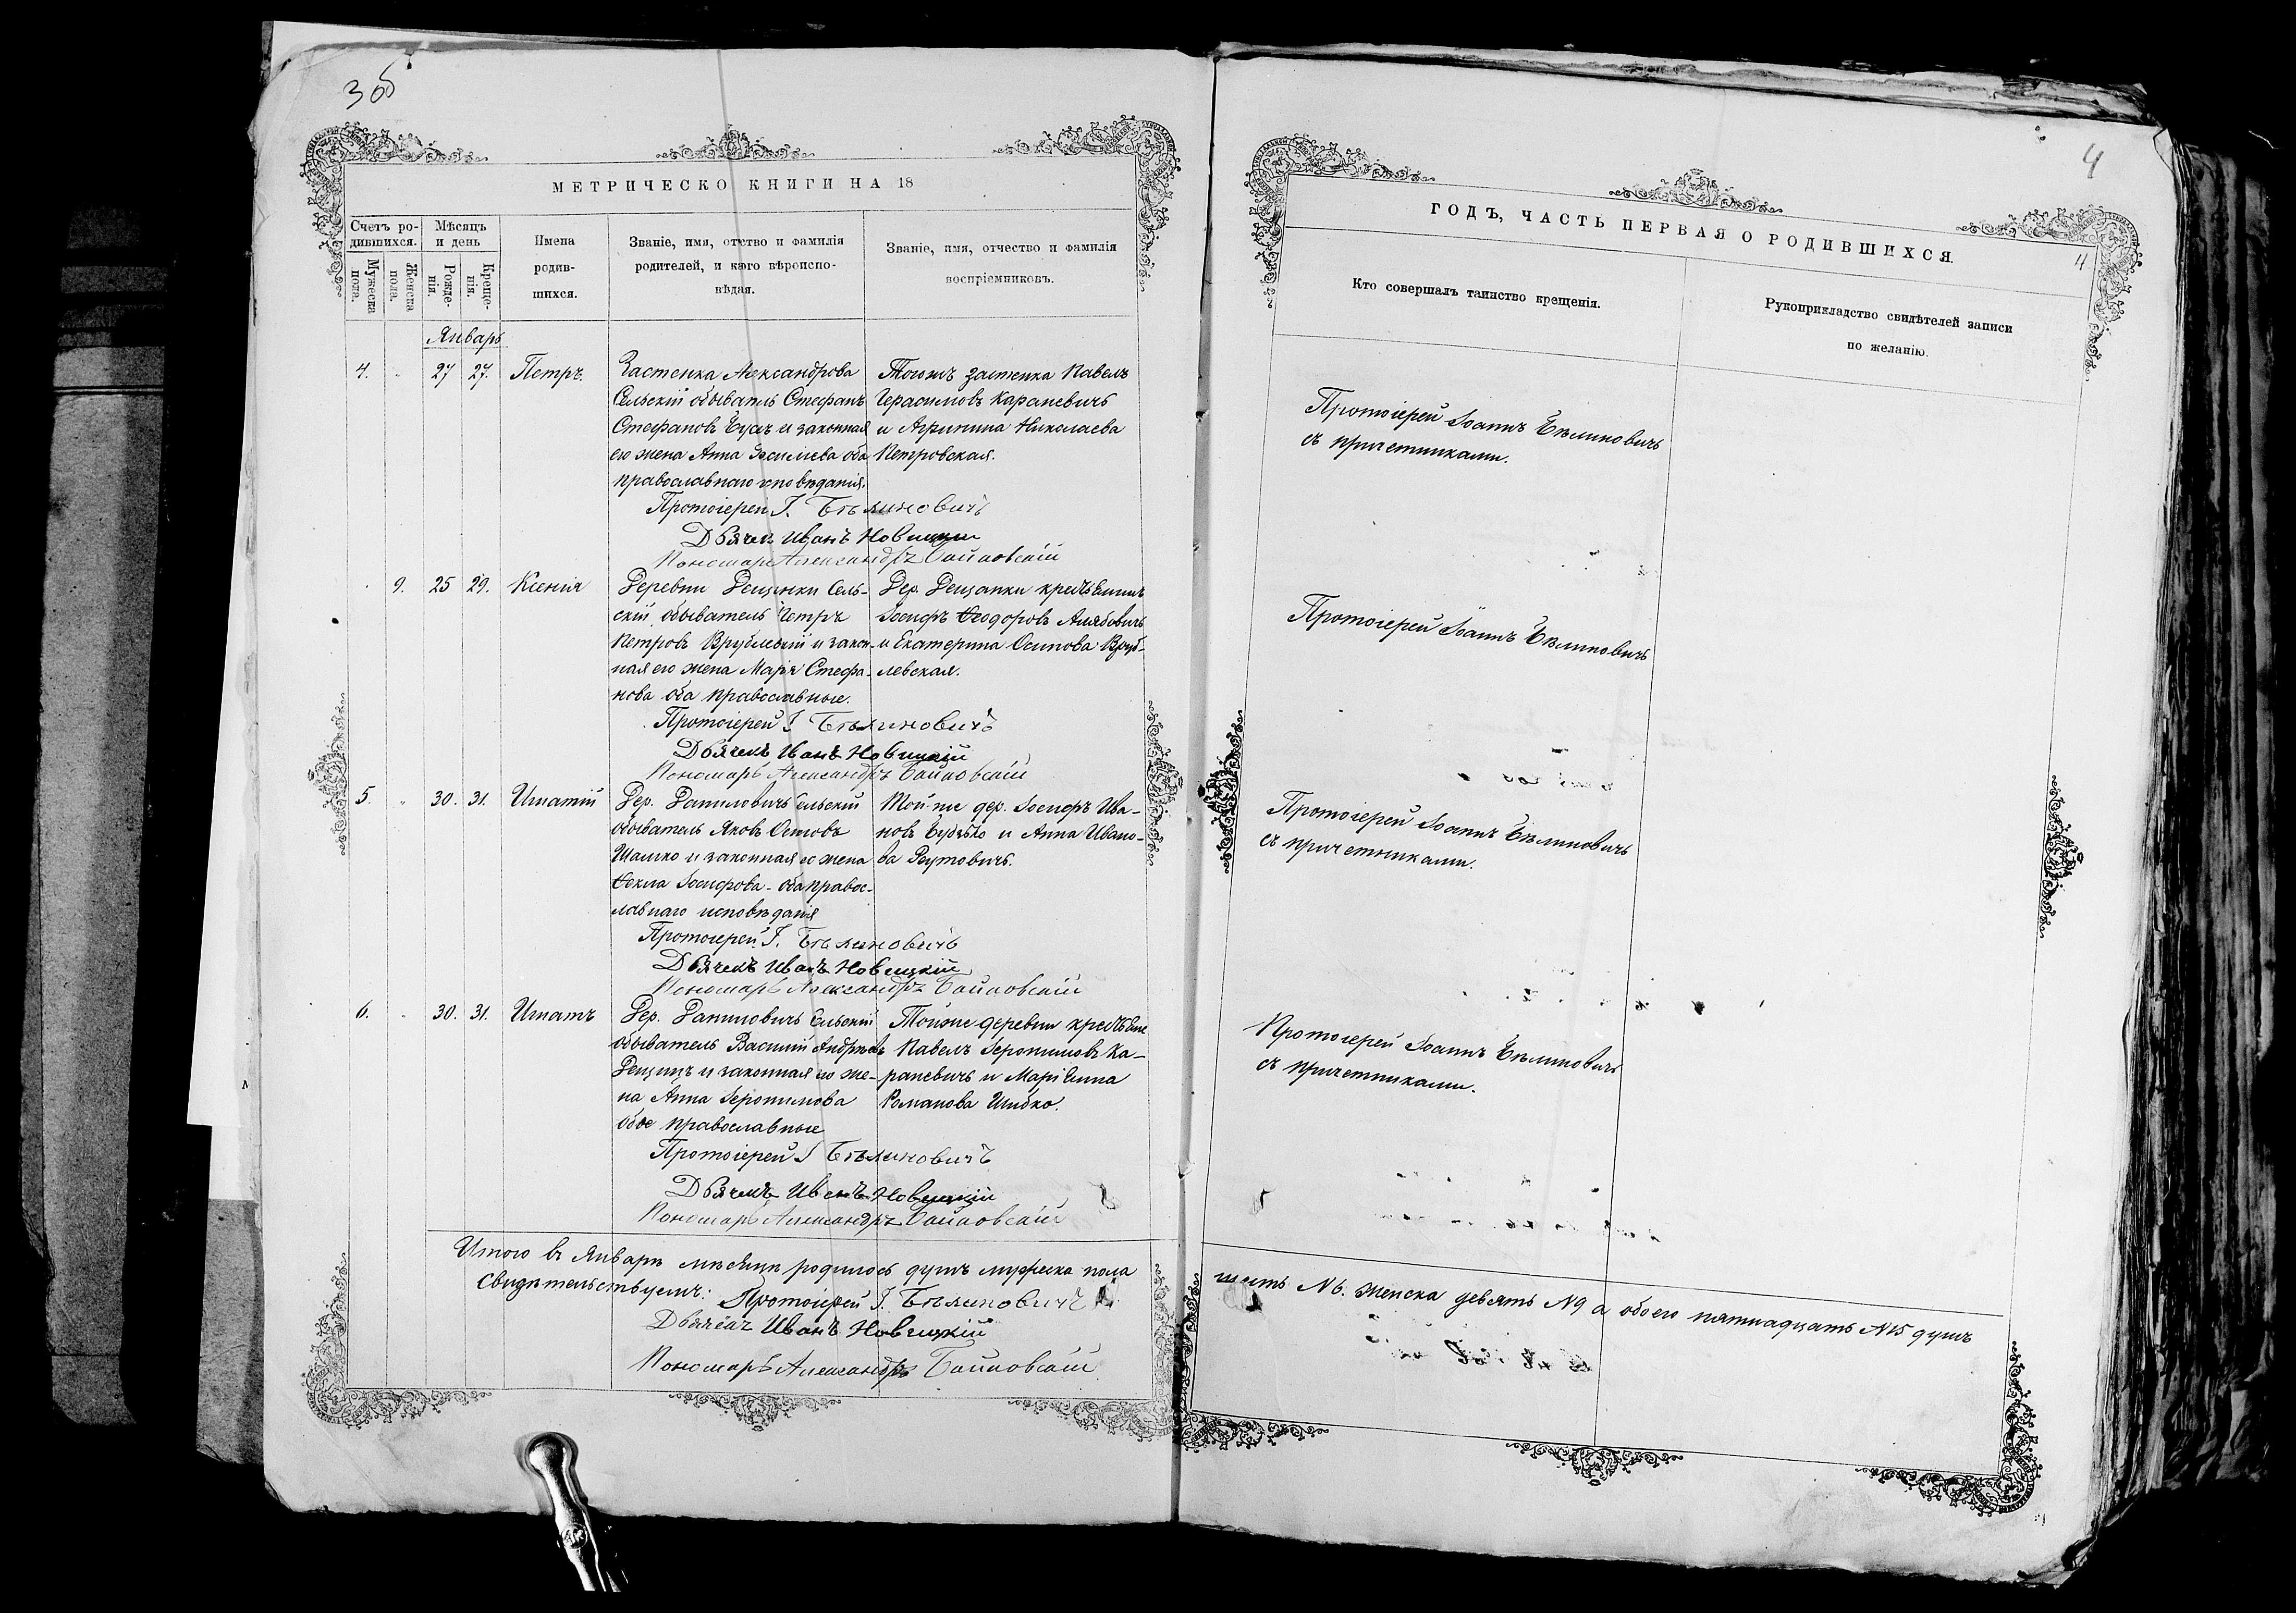 3 об
МЕТРИЧЕСКО КНИГИ НА 18
Счетъ родившихся.
Мужеска пола.
Женска пола.
Мѣсяцъ и день
Рожденія.
Крещенія.
Имена родившихся.
Званіе, имя, отство и фамилія
родителей, и каго вѣроиспо-
вѣдая.
Званіе, имя, отчество и фамилія
воспріемниковъ.
Январь
4. 27 27. Петръ.
Застенка Александрова
Сельскій обыватель Стефанъ
Стефановъ и законная
его жена Анна оба
православнаго исповѣданія.
Тогожъ застенка Павелъ
Герасимовъ Караневичъ
и Агрипина Николаева
Петровская.
Протоіерей І. Бѣлиновичъ
Дьячекъ Иванъ Новицкій
Пономарь Александръ
9. 25 29. Ксенія
Деревни Сель-
скій обыватель Петръ
Петровъ Врублевскій и закон-
ная его жена Марія Стефа-
нова оба православные.
Дер.
Іосифъ Ѳеодоровъ
и Екатерина Осипова Вруб-
левская.
Протоіерей І Бѣлиновичъ
Дьячекъ Иванъ Новицкій
Пономарь Александръ
5. 30. 31. Игнатій
Дер. Даниловичъ сельскій
обыватель Яковъ Осиповъ
и законная его жена
Ѳекла Іосифова - оба правос-
лавнаго исповѣданія
Той-же дер. Іосифъ Ива-
новъ и Анна Ивано-
ва Реутовичъ.
Протоіерей І. Бѣлиновичъ
Дьячекъ Иванъ Новицкій
Пономарь Александръ
6. 30. 31. Игнатъ
Дер. Даниловичъ сельскій
обыватель Василій Андреевъ
и законная его же-
на Анна Іеронимова
обое православные
Тойже деревни
Павелъ Іеронимовъ Ка-
раневичъ и
Романова Шибко.
Протоіерей І Бѣлиновичъ
Дьячекъ Иванъ Новицкій
Пономарь Александръ
Итого въ Январѣ мѣсяцѣ родилось душъ мужеска пола
Свидѣтельствуемъ: Протоіерей І. Бѣлиновичъ
Дьячекъ Иванъ Новицкій
Пономарь Александръ
4
ГОДЪ, ЧАСТЬ ПЕРВАЯ О РОДИВШИХСЯ.
4
Кто совершалъ таинство крещенія.
Рукоприкладство свидѣтелей записи
по желанію.
Протоіерей Іоаннъ Бѣлиновичъ
съ причетниками.
Протоіерей Іоаннъ Бѣлиновичъ
Протоіерей Іоаннъ Бѣлиновичъ
съ причетниками.
Протоіерей Іоаннъ Бѣлиновичъ
съ причетниками.
шесть №6. женска девять №9 а обоего пятнадцать №15 душъ